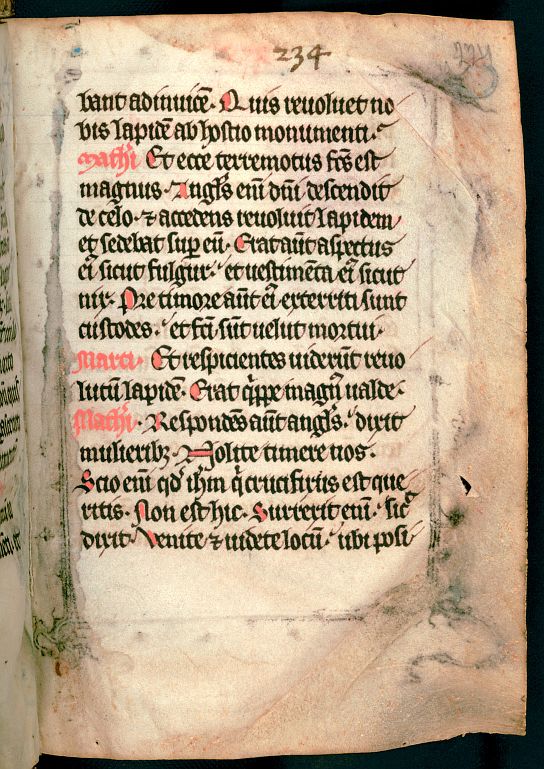 234
224
bant adinuicē. Quis reuoluet no
bis lapidē ab hostio monumenti.
Mathi Et ecce terremotus fcs est
magnus. Angls eni dni descendit
de celo. ⁊ accedens reuoluit lapidem
et sedebat sup eū. Erat aūt aspectus
ei sicut fulgur. et uestimēta ei sicut
nix. Pre timore aūt ei exterriti sunt
custodes. et fci sūt uelut mortui.
Marci. Et respicientes uiderūt reuo
lutū lapidē. Erat qppe magn ualde.
Mathi. Respondēs aūt angls. dixit
mulieribꝫ. Nolite timere uos.
Scio eni qd ihm q crucifixus est que
ritis. Non est hic. Surrexit eni. sic
dixit. Venite ⁊ uidete locū. ubi posi